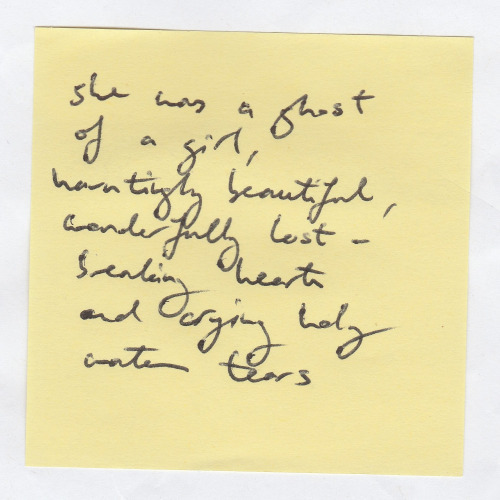 she was a ghost
of a girl,
hauntingly beautiful,
wonderfully lost -
breaking hearts
and crying holy
water tears